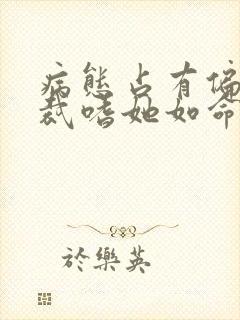 病態占有偏
裁嗜她如命
於樂英